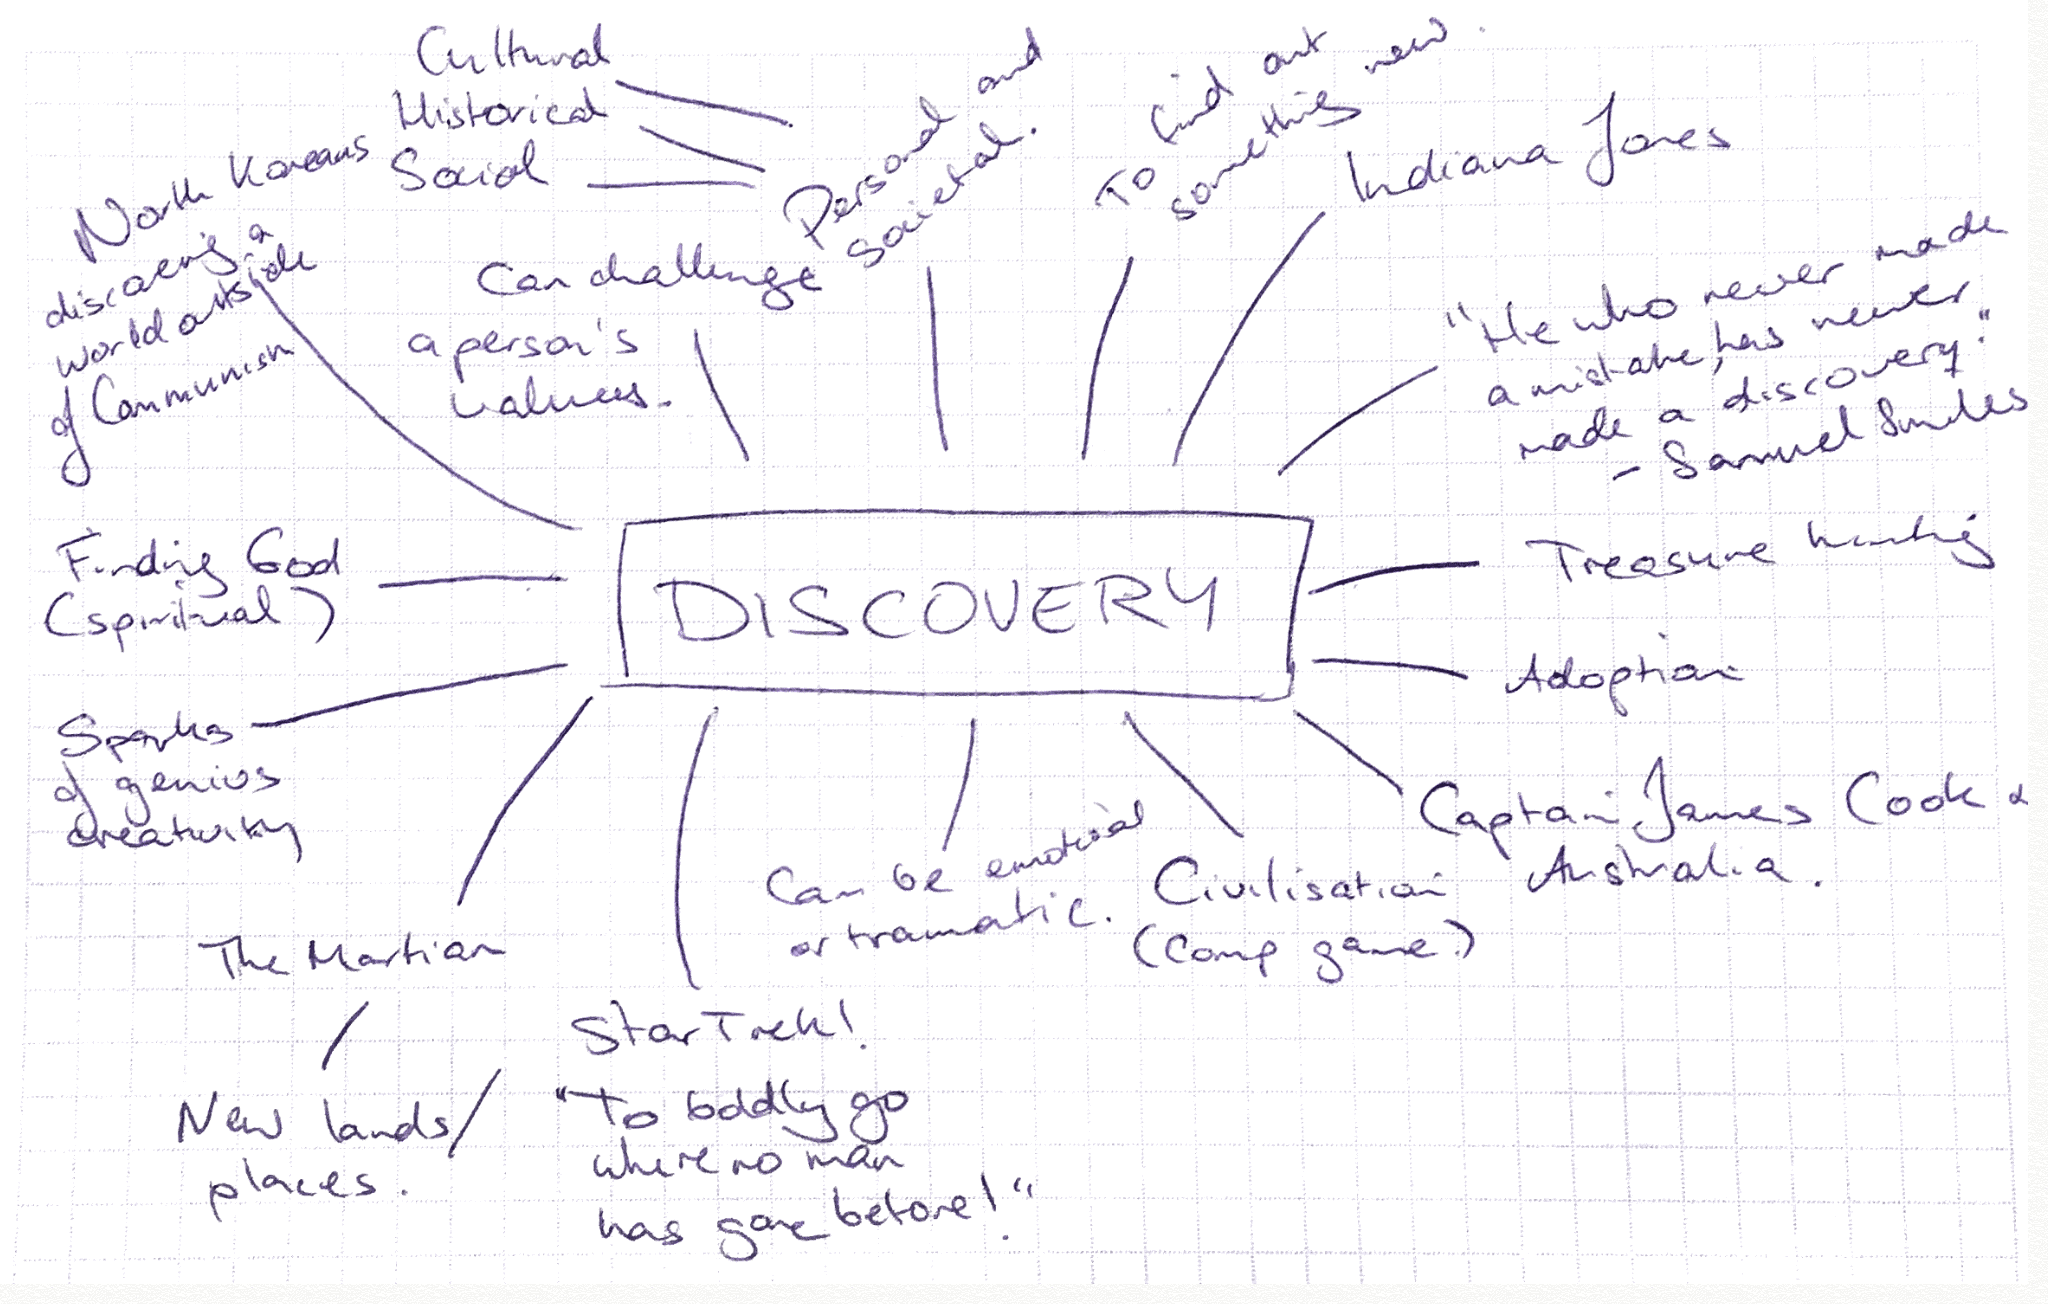 Cultural
Historical
Social
Personal and
societal.
To find out
something new.
Indiana Jones
North Koreans
discovering a
world outside
of Communism
Can challenge
a person's
values.
"He who never made
a mistake, has never
made a discovery."
- Samuel Smiles
Finding God
(spiritual)
DISCOVERY
Treasure hunting
Adoption
Sparks
of genius
creativity
Captain James Cook &
Australia.
Can be emotional
or traumatic.
Civilisation
(comp game)
The Martian
New lands/
places.
Star Trek!
"To boldly go
where no man
has gone before!"